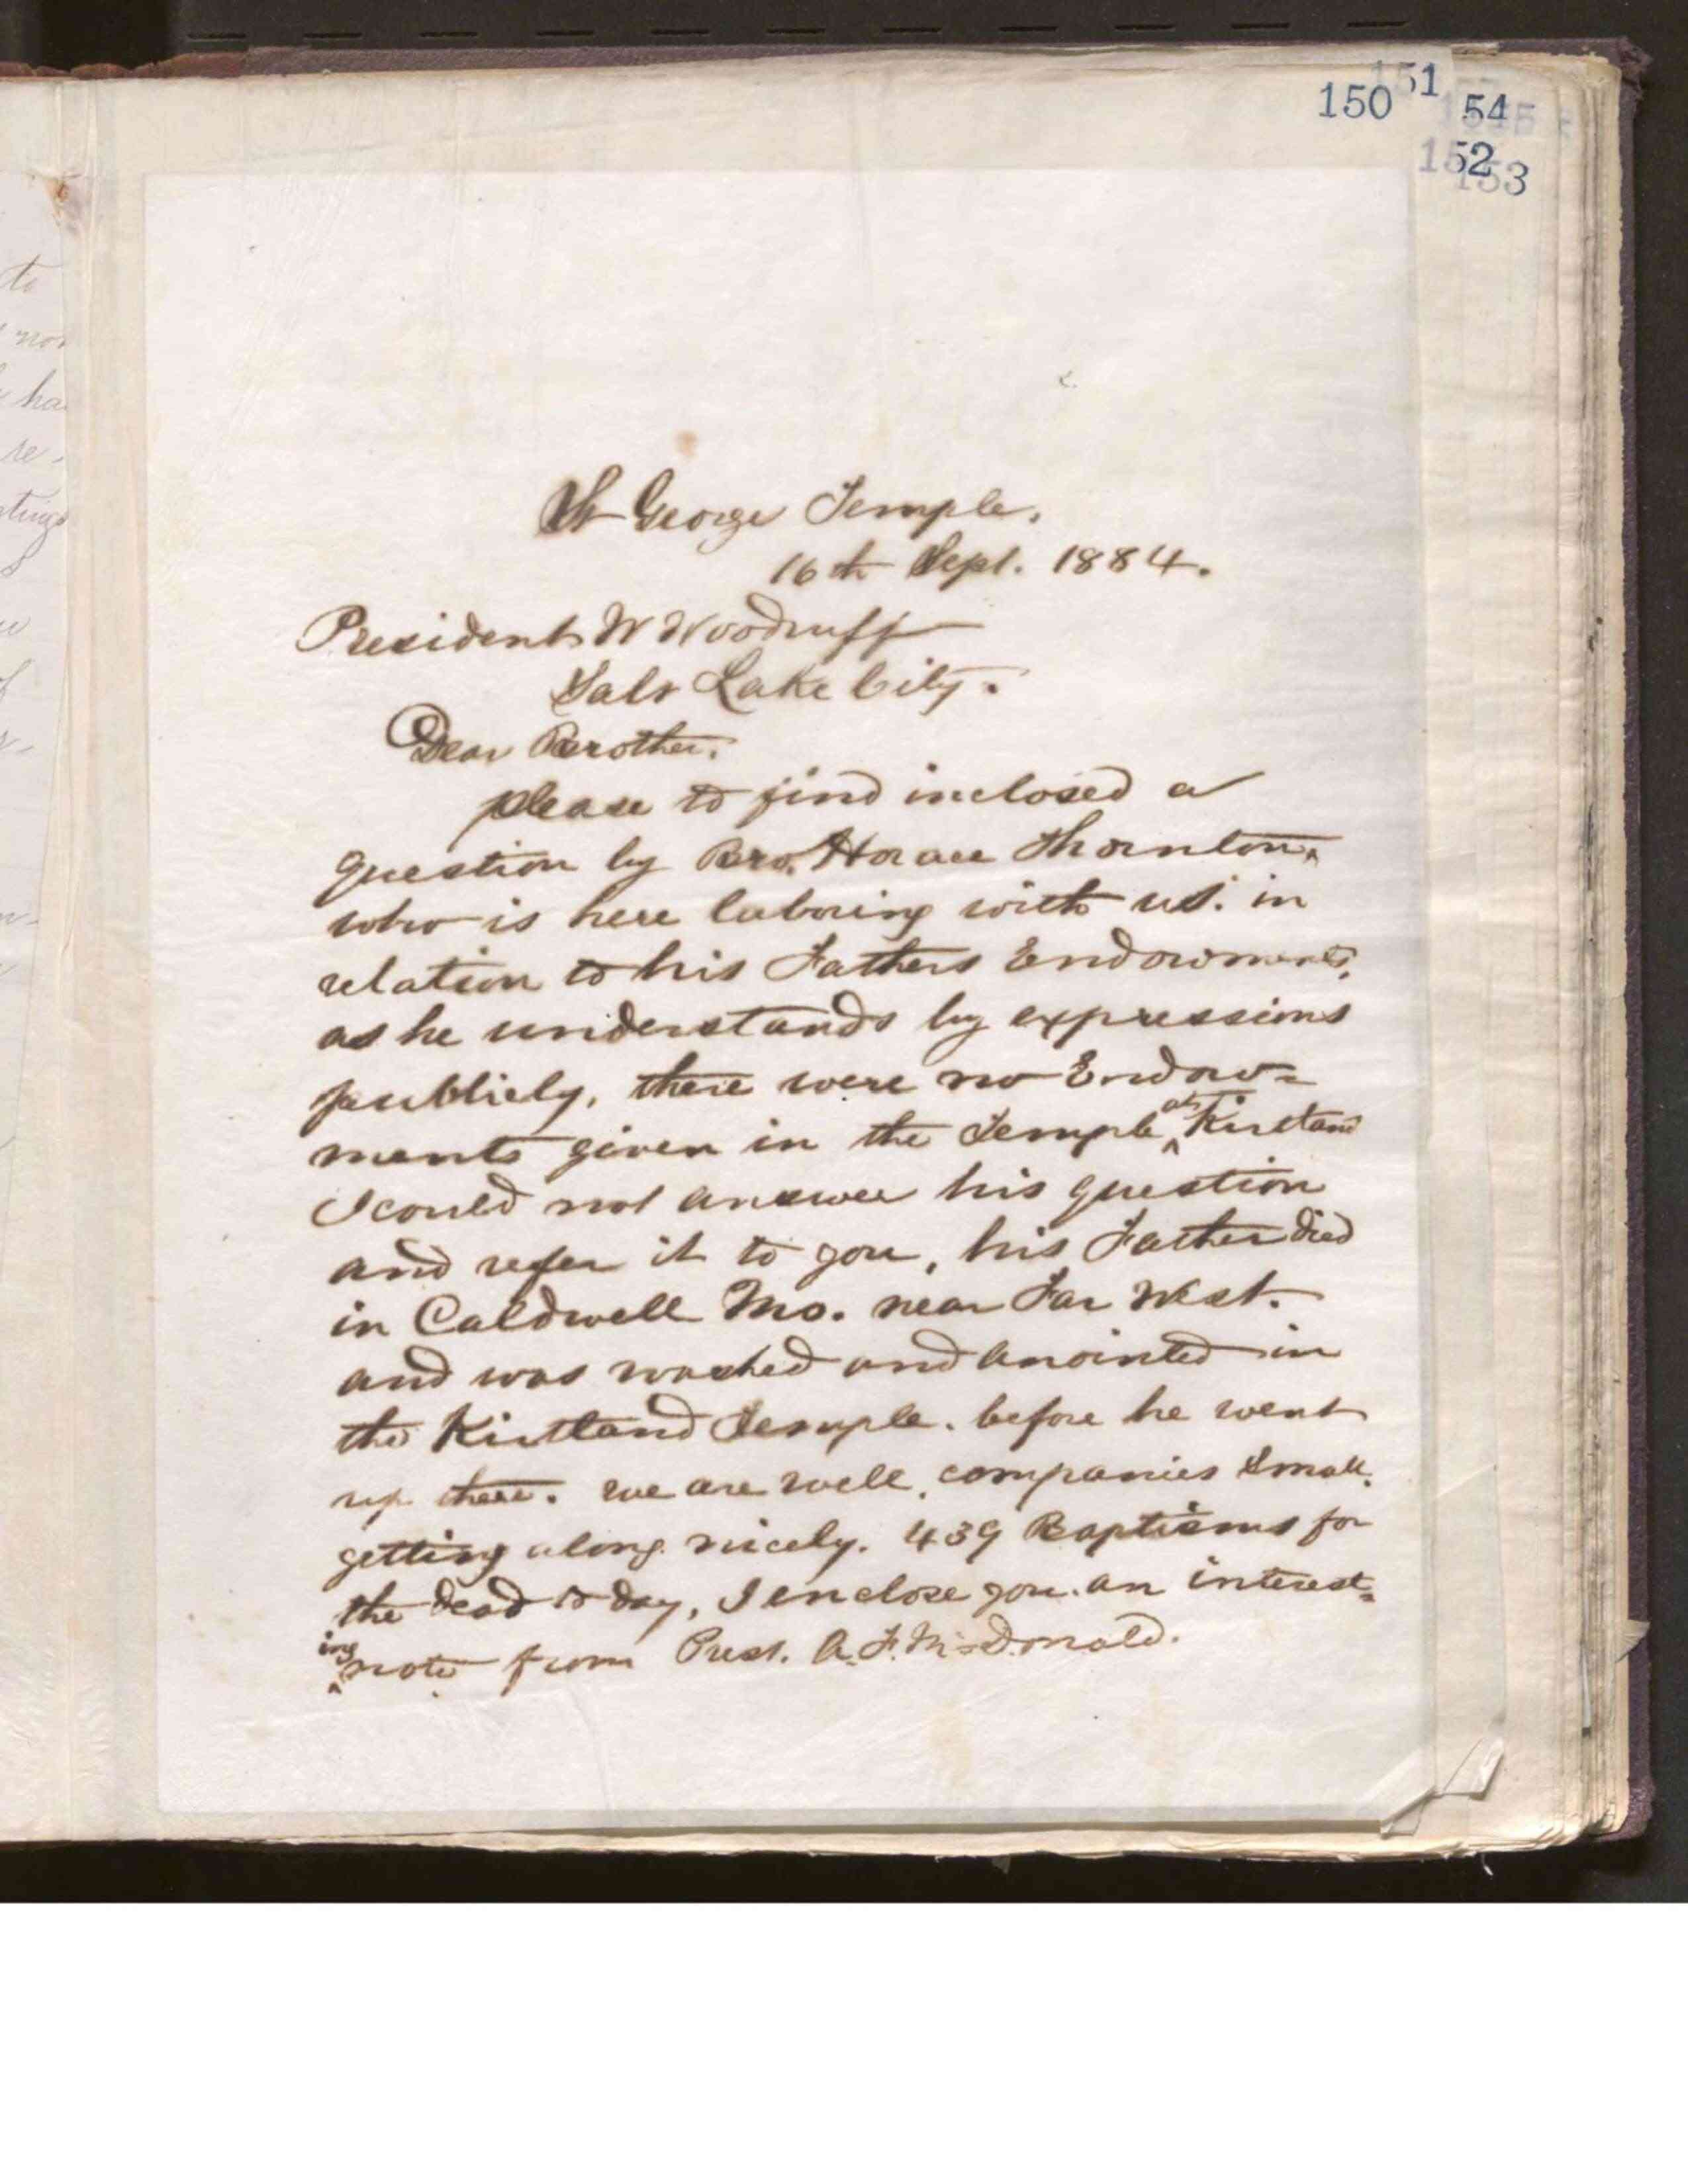 150
151
154
152
153
St George Temple.
16th Sept. 1884.
President W Woodruff
Salt Lake City.
Dear Brother.
please to find inclosed a
question by Bro. Horace Thornton,
who is here laboring with us. in
relation to his Fathers Endowments,
as he understands by expressions
publicly, there were no Endow-
ments given in the Temple at Kirtland
I could not answer his question
and refer it to you, his Father died
in Caldwell Mo. near Far West.
and was washed and anointed in
the Kirtland Temple. before he went
up there. we are well, companies small.
getting along nicely. 439 Baptisms for
the dead to day, I enclose you. an interest-
ing note from Prest. A. F. McDonald.